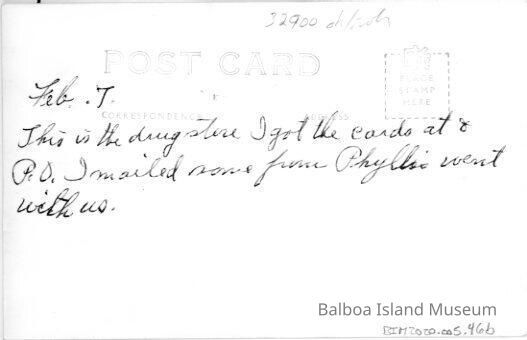 32900
POST CARD
PLACE
STAMP
HERE
Feb. 7.
CORRESPONDENCE ADDRESS
This is the drug store I got the cards at &
P.O. I mailed some from Phyllis went
with us.
Balboa Island Museum
BIM2020.005.96b